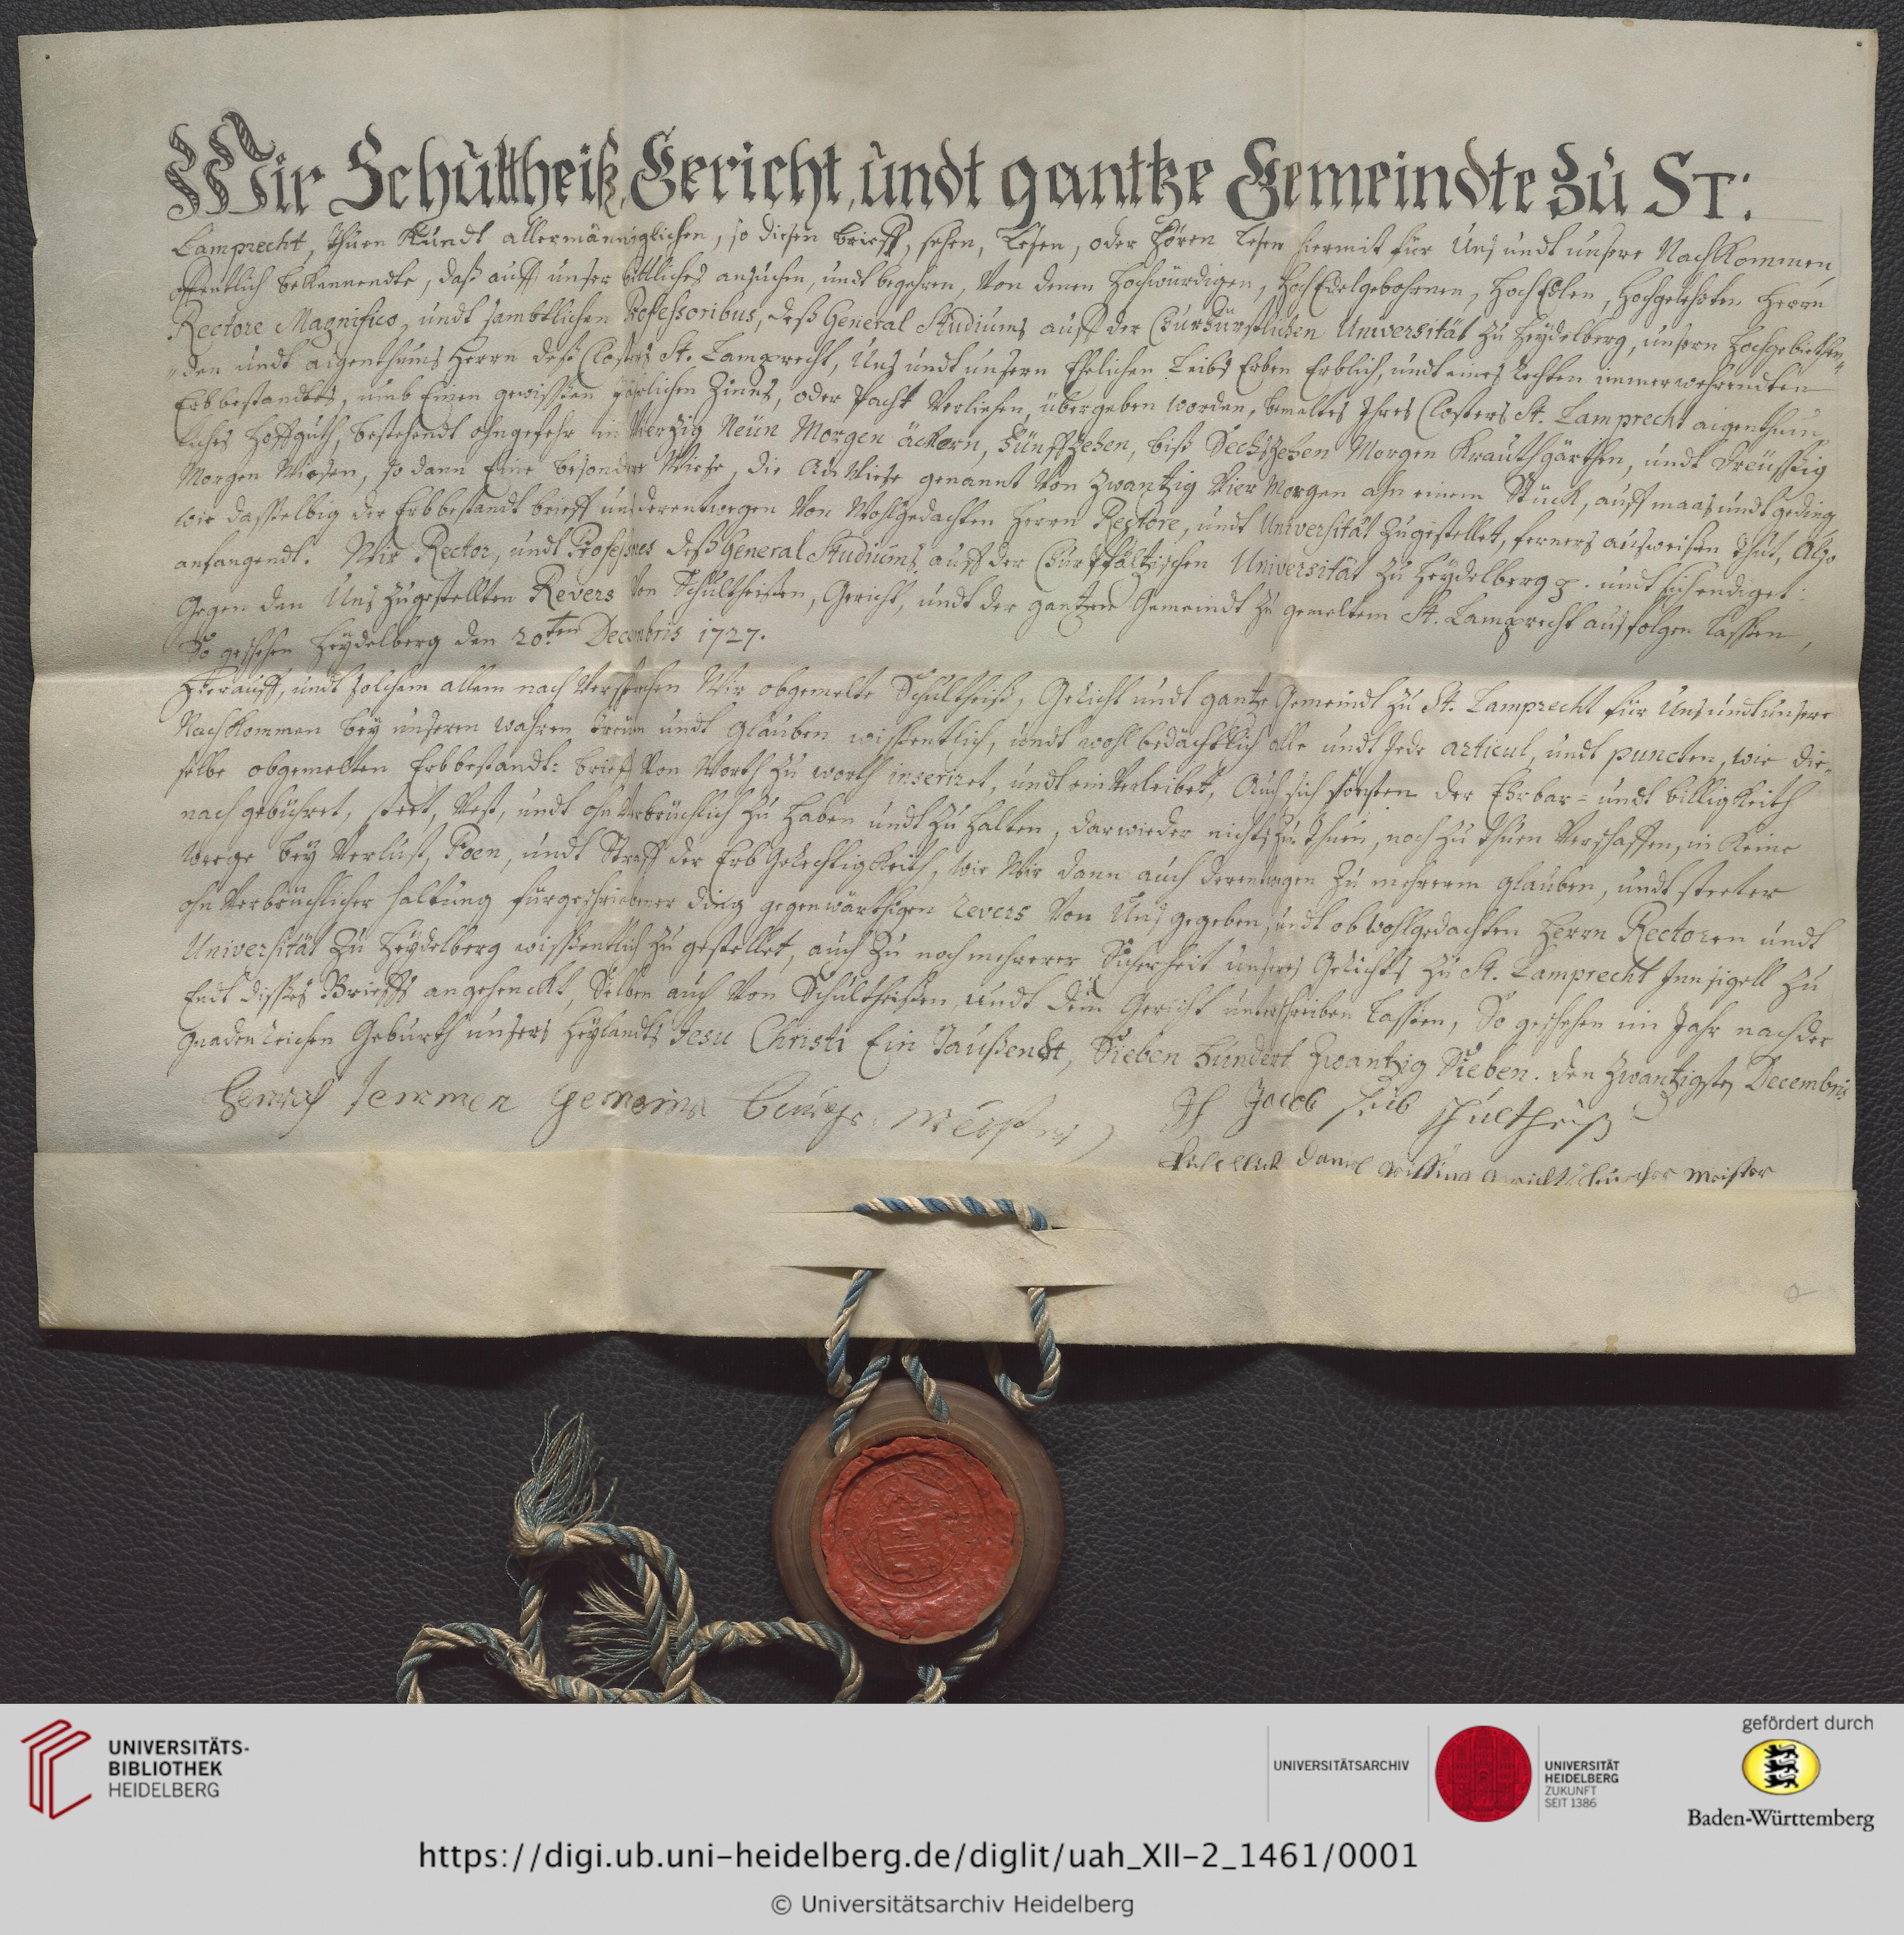 Wir Schultheiß, Gericht, undt gantze Gemeindte Zu ST:
Lamprecht, Thuen Kundt allermänniglichen, so diesen brieff, sehen, Lesen, oder hören Lesen hiermit für Uns undt unsere Nachkommen,
offentlich bekennendte, daß auff unser bittliches ansuchen, undt begehren, Von denen Hochwürdigen, HochEdelgebohrnen, HochEdlen, Hochgelehrten Herrn
Rectore Magnifico, undt sambtlichen Professoribus, deß General Studiums auff der Churfürstlichen Universität zu Heydelberg, unsern Hochgebiethen„
„den undt aigenthums Herrn deß Closters St. Lamprecht, Uns undt unsern Ehelichen Leibs Erben Erblich, undt eines Rechten immerwehrendten
Erbbestandtes, umb Einen gewissen jährlichen Zinns, oder Pacht Verliehen, übergeben worden, bemeltes Ihres Closters St. Lamprecht aigenthum„
liches Hoffguth, bestehendt ohngefehr in Vierzig Neün Morgen äckern, Fünffzehen, biß Sechszehen Morgen Krauthgärthen, undt Dreüssig
Morgen Wiesen, so dann Eine besondere Wiese, die Au Wiese genannt Von Zwantzig Vier Morgen ahn einem Stück, auff maas undt geding
wie dasselbig der Erbbestandt brieff uns derentwegen Von Wohlgedachten Herrn Rectore, undt Universität Zugestellet, ferners ausweisen Thut, Also
anfangendt. Wir Rector, undt Professores deß General Studiums auff der Churpfältzischen Universität zu Heydelberg p. undt sich endiget:
Gegen den Uns Zugestellten Revers Von Schultheißen, Gericht, undt der gantzen Gemeindt zu gemeltem St. Lamprecht ausfolgen Lassen,
So geschehen Heydelberg den 20ten Decembris 1727.
Hierauff, undt solchem allem nach Versprechen Wir obgemelte Schultheiß, Gericht undt gantze Gemeindt zu St. Lamprecht für Uns undt unsere
Nachkommen bey unseren wahren Treuen undt Glauben wissentlich, undt wohl bedächtlich alle undt Jede articul, undt puncten, wie die-
selbe obgemelten Erbbestandt: brieff Von Worth zu worth inseriret, undt einverleibet, Auch sich sönsten der Ehrbar= undt billigkeith
nach gebühret, steet, Vest, undt ohn Verbrüchlich zu haben undt zu halten, darwieder nichts zu Thuen, noch zu Thuen Verschaffen, in Keine
Weege bey Verlust, Poen, undt Straff der Erb Gerechtigkeith, wie Wir dann auch derentwegen zu mehrerm glauben, undt steeter
ohn Verbrüchlicher haltung fürgeschriebener ding gegenwärthigen revers Von Uns gegeben, undt obwohlgedachten Herrn Rectoren undt
Universität zu Heydelberg wissentlich zu gestellet, auch zu noch mehrerer Sicherheit unseres Gerichts zu St. Lamprecht Innsigell zu
Endt dießes Brieffs angehenckt, Selben auch Von Schultheißen, undt dem Gericht unterschreiben Lassen, So geschehen im Jahr nach der
Gnadenreichen Geburth unsers Heylandts Jesu Christi Ein Taußendt, Sieben Hundert Zwantzig Sieben. den Zwantzigsten Decembris
Henrich Jemmer
Jacob schultheiß
Daniel Meister
UNIVERSITÄTS-
BIBLIOTHEK
HEIDELBERG
UNIVERSITÄTSARCHIV
UNIVERSITÄT
HEIDELBERG
ZUKUNFT
SEIT 1386
gefördert durch
Baden-Württemberg
https://digi.ub.uni-heidelberg.de/diglit/uah_XII-2_1461/0001
© Universitätsarchiv Heidelberg